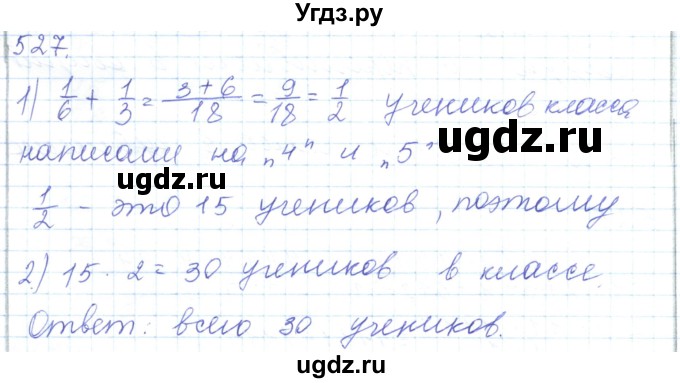 Угдз.ру
527.
1) 1/6 + 1/3 = 3+6/18 = 9/18 = 1/2 учеников класса
ugdz.ru
написали на „4" и „5"
ugdz.ru
ugdz.ru
1/2 - это 15 учеников, поэтому
2) 15 · 2 = 30 учеников в классе.
ugdz.ru
ugdz.ru
Ответ: всего 30 учеников.
ugdz.ru